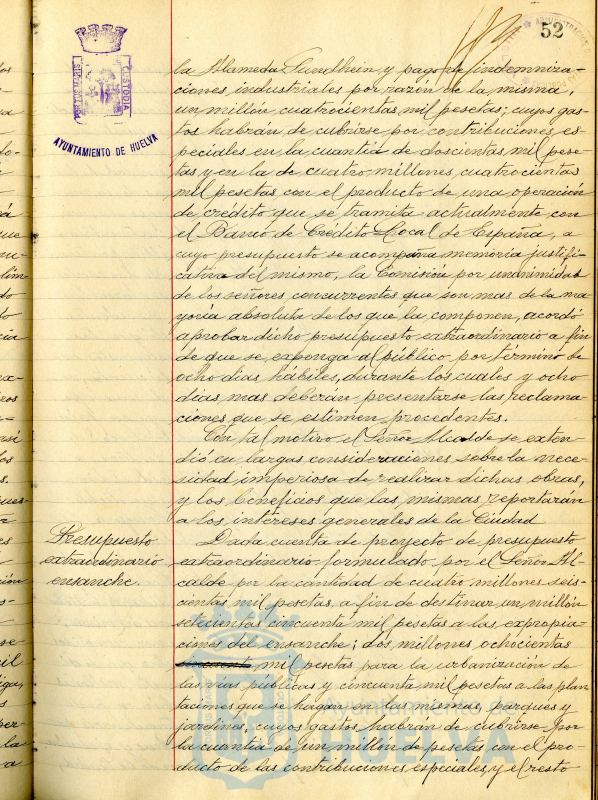 52
PORTUS MARIS
CUSTODIA
AYUNTAMIENTO DE HUELVA
la Alameda Sundhein, y pago de indemniza-
ciones industriales por razón de la misma,
un millón cuatrocientas mil pesetas, cuyos gas-
tos habrán de cubrirse por contribuciones es-
peciales en la cuantía de doscientas mil pese-
tas y en la de cuatro millones cuatrocientas
mil pesetas con el producto de una operación
de crédito que se tramita actualmente con
el Banco de Crédito Local de España, a
cuyo presupuesto se acompaña memoria justifi-
cativa del mismo, la Comisión por unanimidad
de los señores concurrentes que son mas de la ma-
yoría absoluta de los que la componen, acordó
aprobar dicho presupuesto extraordinario a fin
de que se exponga al público por término de
ocho dias hábiles, durante los cuales y ocho
dias mas deberan presentarse las reclama
ciones que se estimen procedentes.
Con tal motivo el Señor Alcalde se exten-
dió en largas consideraciones sobre la nece-
sidad imperiosa de realizar dichas obras,
y los beneficios que las mismas reportarán
a los intereses generales de la Ciudad
Presupuesto
extraordinario
ensanche.
Dada cuenta de proyecto de presupuesto
extraordinario formulado por el Señor Al-
calde por la cantidad de cuatro millones seis-
cientas mil pesetas, a fin de destinar un millón
setecientas cincuenta mil pesetas a las expropia-
ciones del ensanche; dos millones ochocientas
mil pesetas para la urbanización de
las vías públicas y cincuenta mil pesetas a las plan
taciones que se hagan en las mismas, parques y
jardines, cuyos gastos habrán de cubrirse por
la cuantía de un millón de pesetas con el pro-
ducto de las contribuciones especiales, y el resto
Ayuntamiento
HUELVA